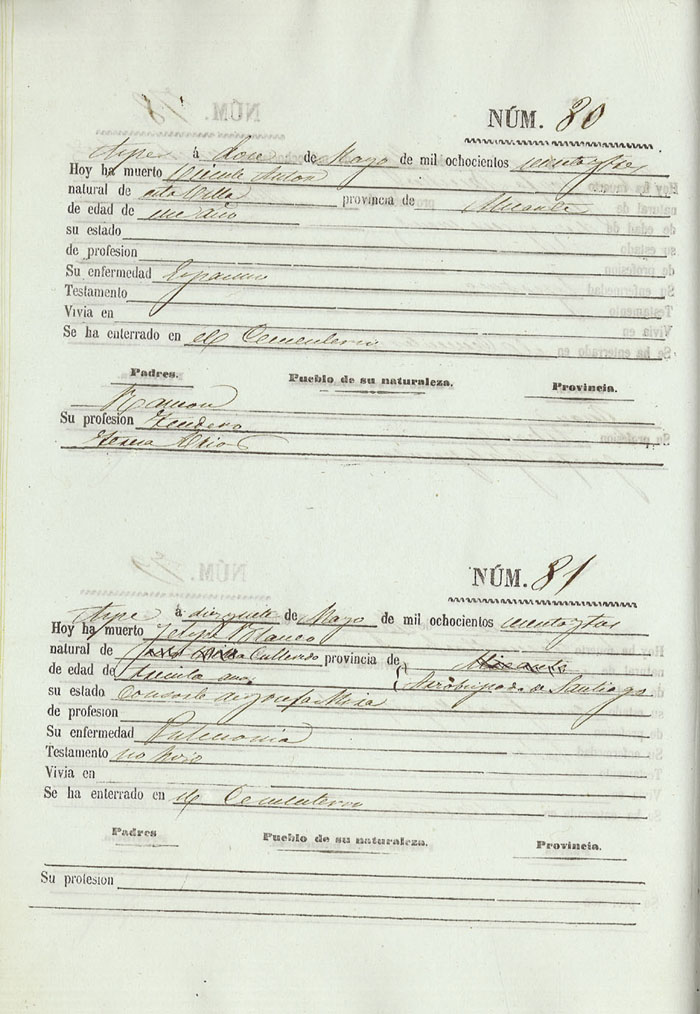 NÚM. 80
Aspe á doce de Mayo de mil ochocientos
Hoy ha muerto Vicente Anton
natural de esta Villa provincia de Alicante
de edad de un año
su estado
de profesion
Su enfermedad
Testamento
Vivia en
Se ha enterrado en el Cementerio
Padres. Pueblo de su naturaleza. Provincia.
Ramon
Su profesion Tendero
NÚM. 81
Aspe á diez y siete de Mayo de mil ochocientos
Hoy ha muerto Felipe Blanco
natural de provincia de Alicante
de edad de treinta años Arzobispado de Santiago
su estado Consorte de Josefa Mira
de profesion
Su enfermedad Pulmonia
Testamento no hizo
Vivia en
Se ha enterrado en el Cementerio
Padres Pueblo de su naturaleza. Provincia.
Su profesion